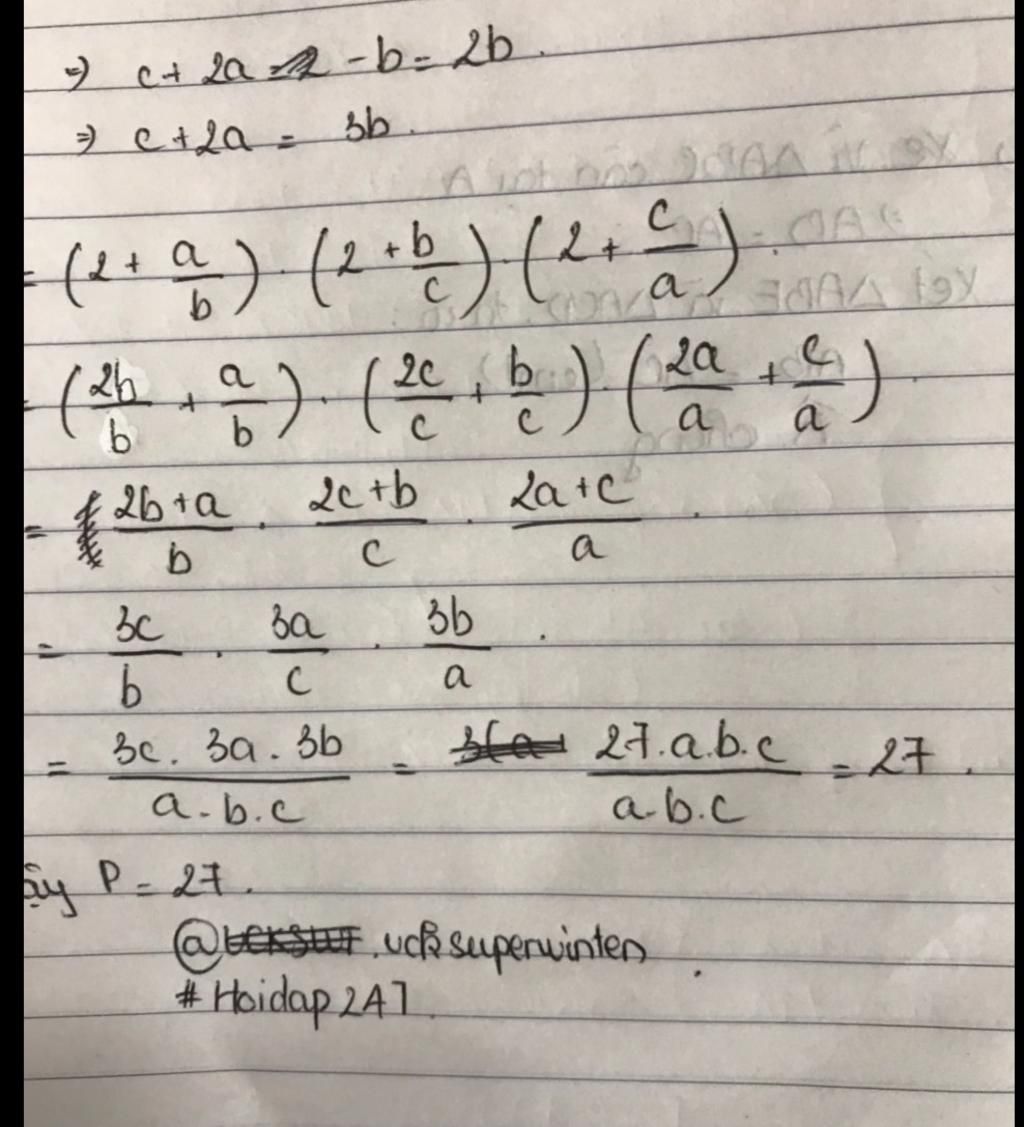 => c + 2a - b = 2b.
=> c + 2a = 3b.
= (2 + a/b) . (2 + b/c) . (2 + c/a).
= (2b/b + a/b) . (2c/c + b/c) . (2a/a + c/a).
= (2b+a)/b . (2c+b)/c . (2a+c)/a .
= 3c/b . 3a/c . 3b/a .
= (3c. 3a. 3b)/(a.b.c) = (27.a.b.c)/(a.b.c) = 27.
ậy P = 27.
@ucksuperwinten
# Hoidap247.